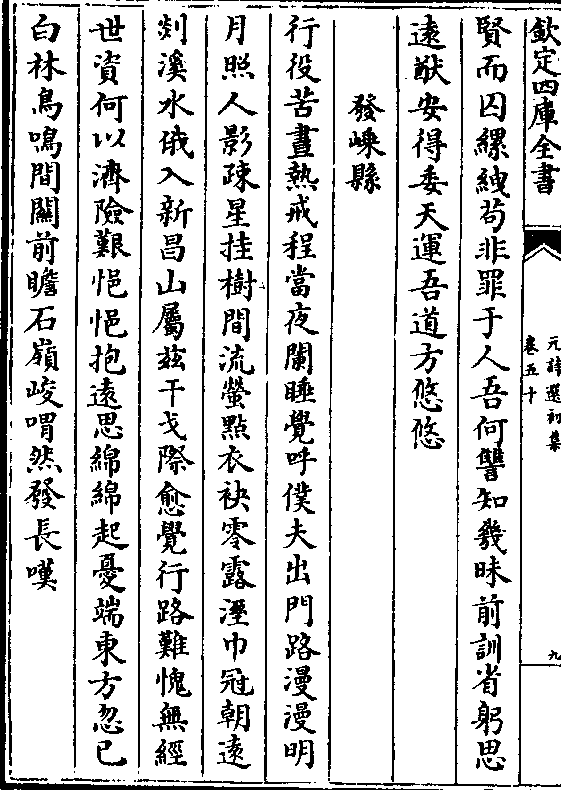 欽定四庫全書
元詩選初集
卷五十
九
賢而囚縲絏茍非罪于人吾何讐知幾昧前訓省躬思
遠猷安得委天運吾道方悠悠
發嵊縣
行役苦晝熱戒程當夜闌睡覺呼僕夫出門路漫漫明
月照人影疎星挂樹間流螢點衣袂零露溼巾冠朝遠
剡溪水俄入新昌山屬兹干戈際愈覺行路難愧無經
世資何以濟險艱悒悒抱遠思綿綿起憂端東方忽已
白林鳥鳴間關前瞻石嶺峻喟然發長嘆